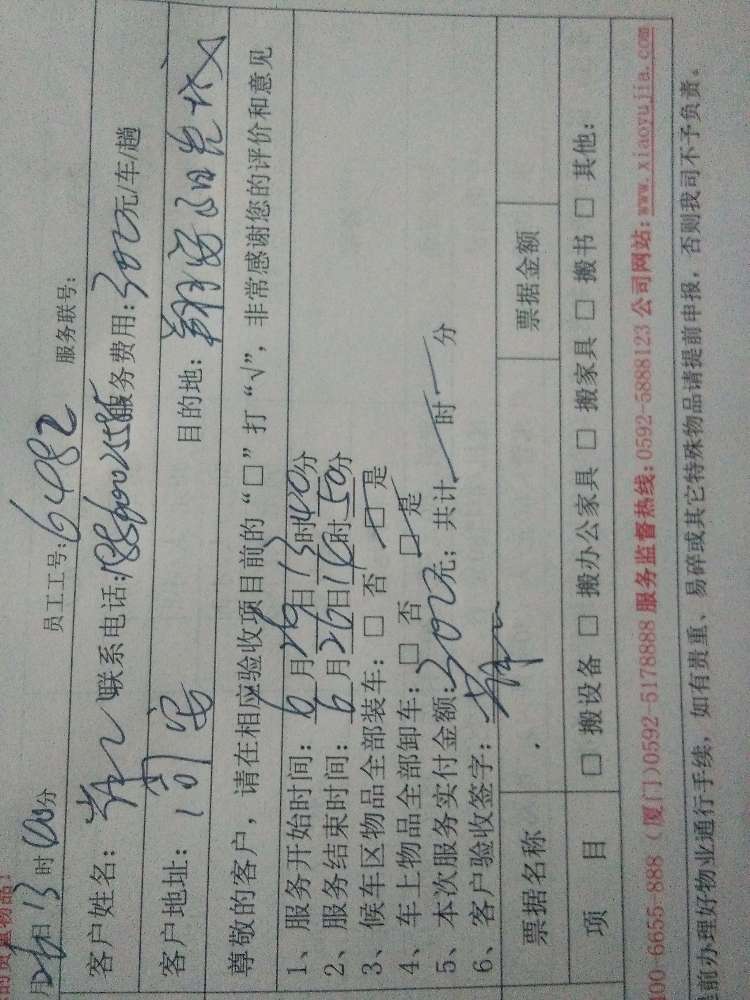 的贵重物品!
月26日13时40分 员工工号:6482 服务联号:
客户姓名: 联系电话: 服务费用:300元/车/趟
客户地址:同安 目的地:翔安阳光城
尊敬的客户,请在相应验收项目前的“□”打“√”,非常感谢您的评价和意见
1、服务开始时间:6月26日13时40分
2、服务结束时间:6月26日14时50分
3、候车区物品全部装车:□ 否 □ 是
4、车上物品全部卸车:□ 否 □ 是
5、本次服务实付金额:300元;共计 时 分
6、客户验收签字:
票据名称 票据金额
项 目 □ 搬设备 □ 搬办公家具 □ 搬家具 □ 搬书 □ 其他:
00-6655-888(厦门)0592-5178888 服务监督热线:0592-5888123 公司网站:www.xiaoyujia.com
前办理好物业通行手续,如有贵重、易碎或其它特殊物品请提前申报,否则我司不予负责。